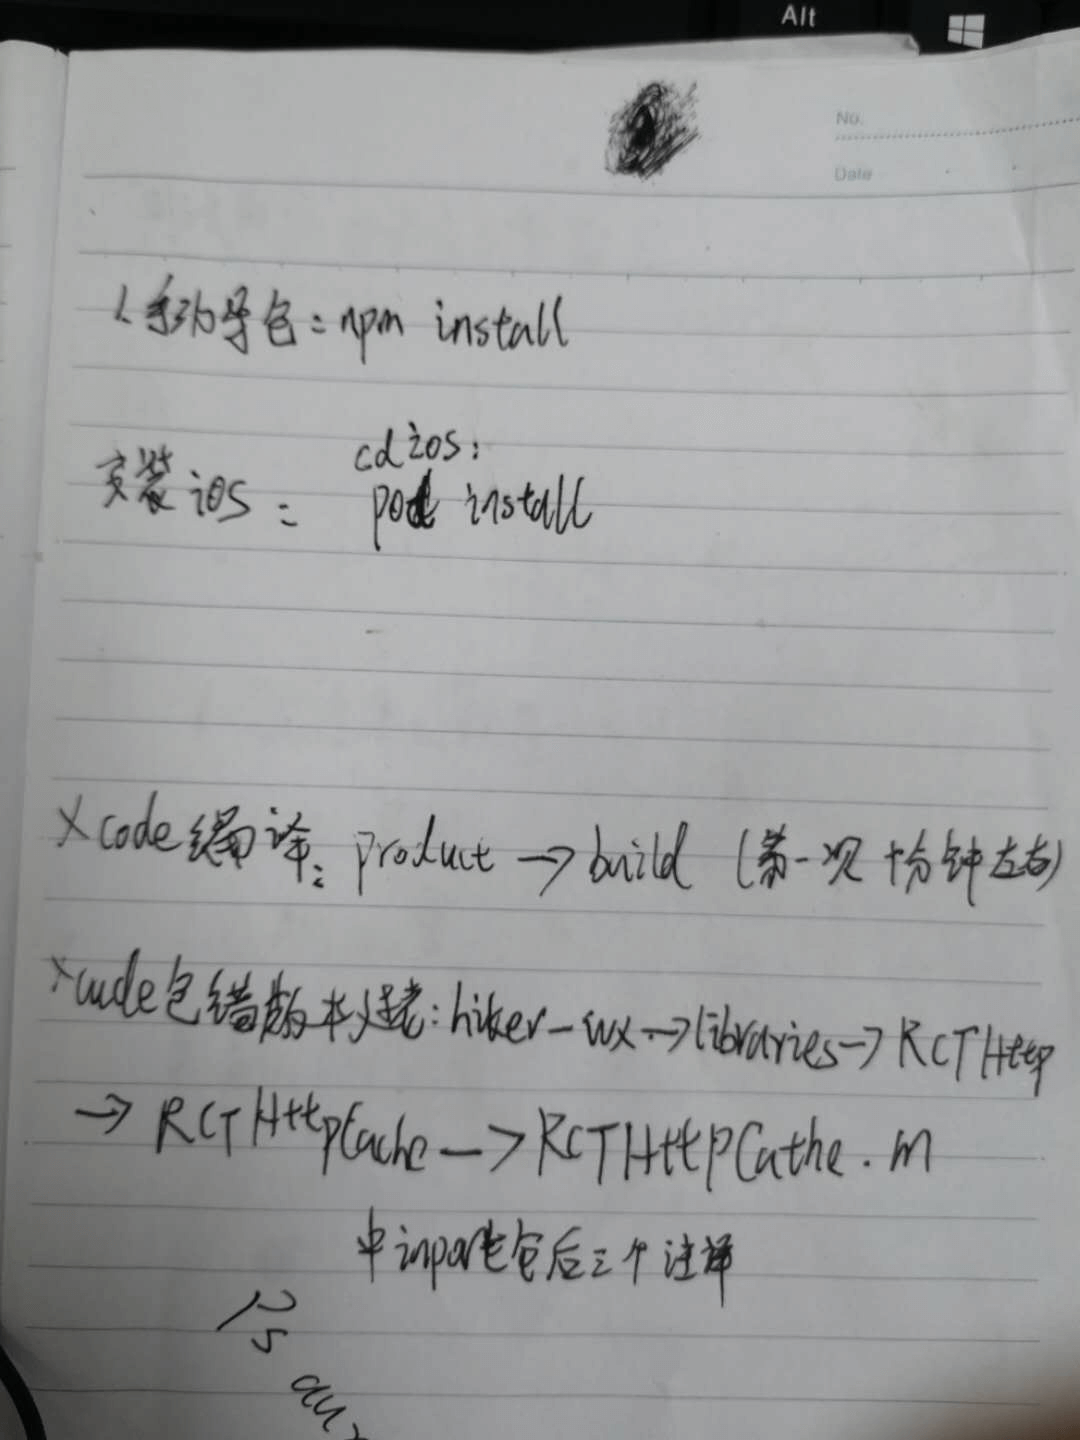 Alt
No.
Date
1.手动导包：npm install
cd ios：
安装ios：
pod install
Xcode编译：product → build （第一次十分钟左右）
Xcode包错版本过老：hiker-wx → libraries → RCTHttp
→ RCTHttpCache → RCTHttpCathe.m
中inport包后三个注译
Ps
aux